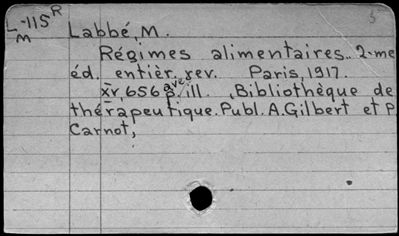 L-115R
M
Labbé, M.
Régimes alimentaires.. 2-me
éd. entièr. rev. Paris, 1917.
xv, 656 p. avec ill. (Bibliothèque de
thérapeutique. Publ. A. Gilbert et P.
Carnot,